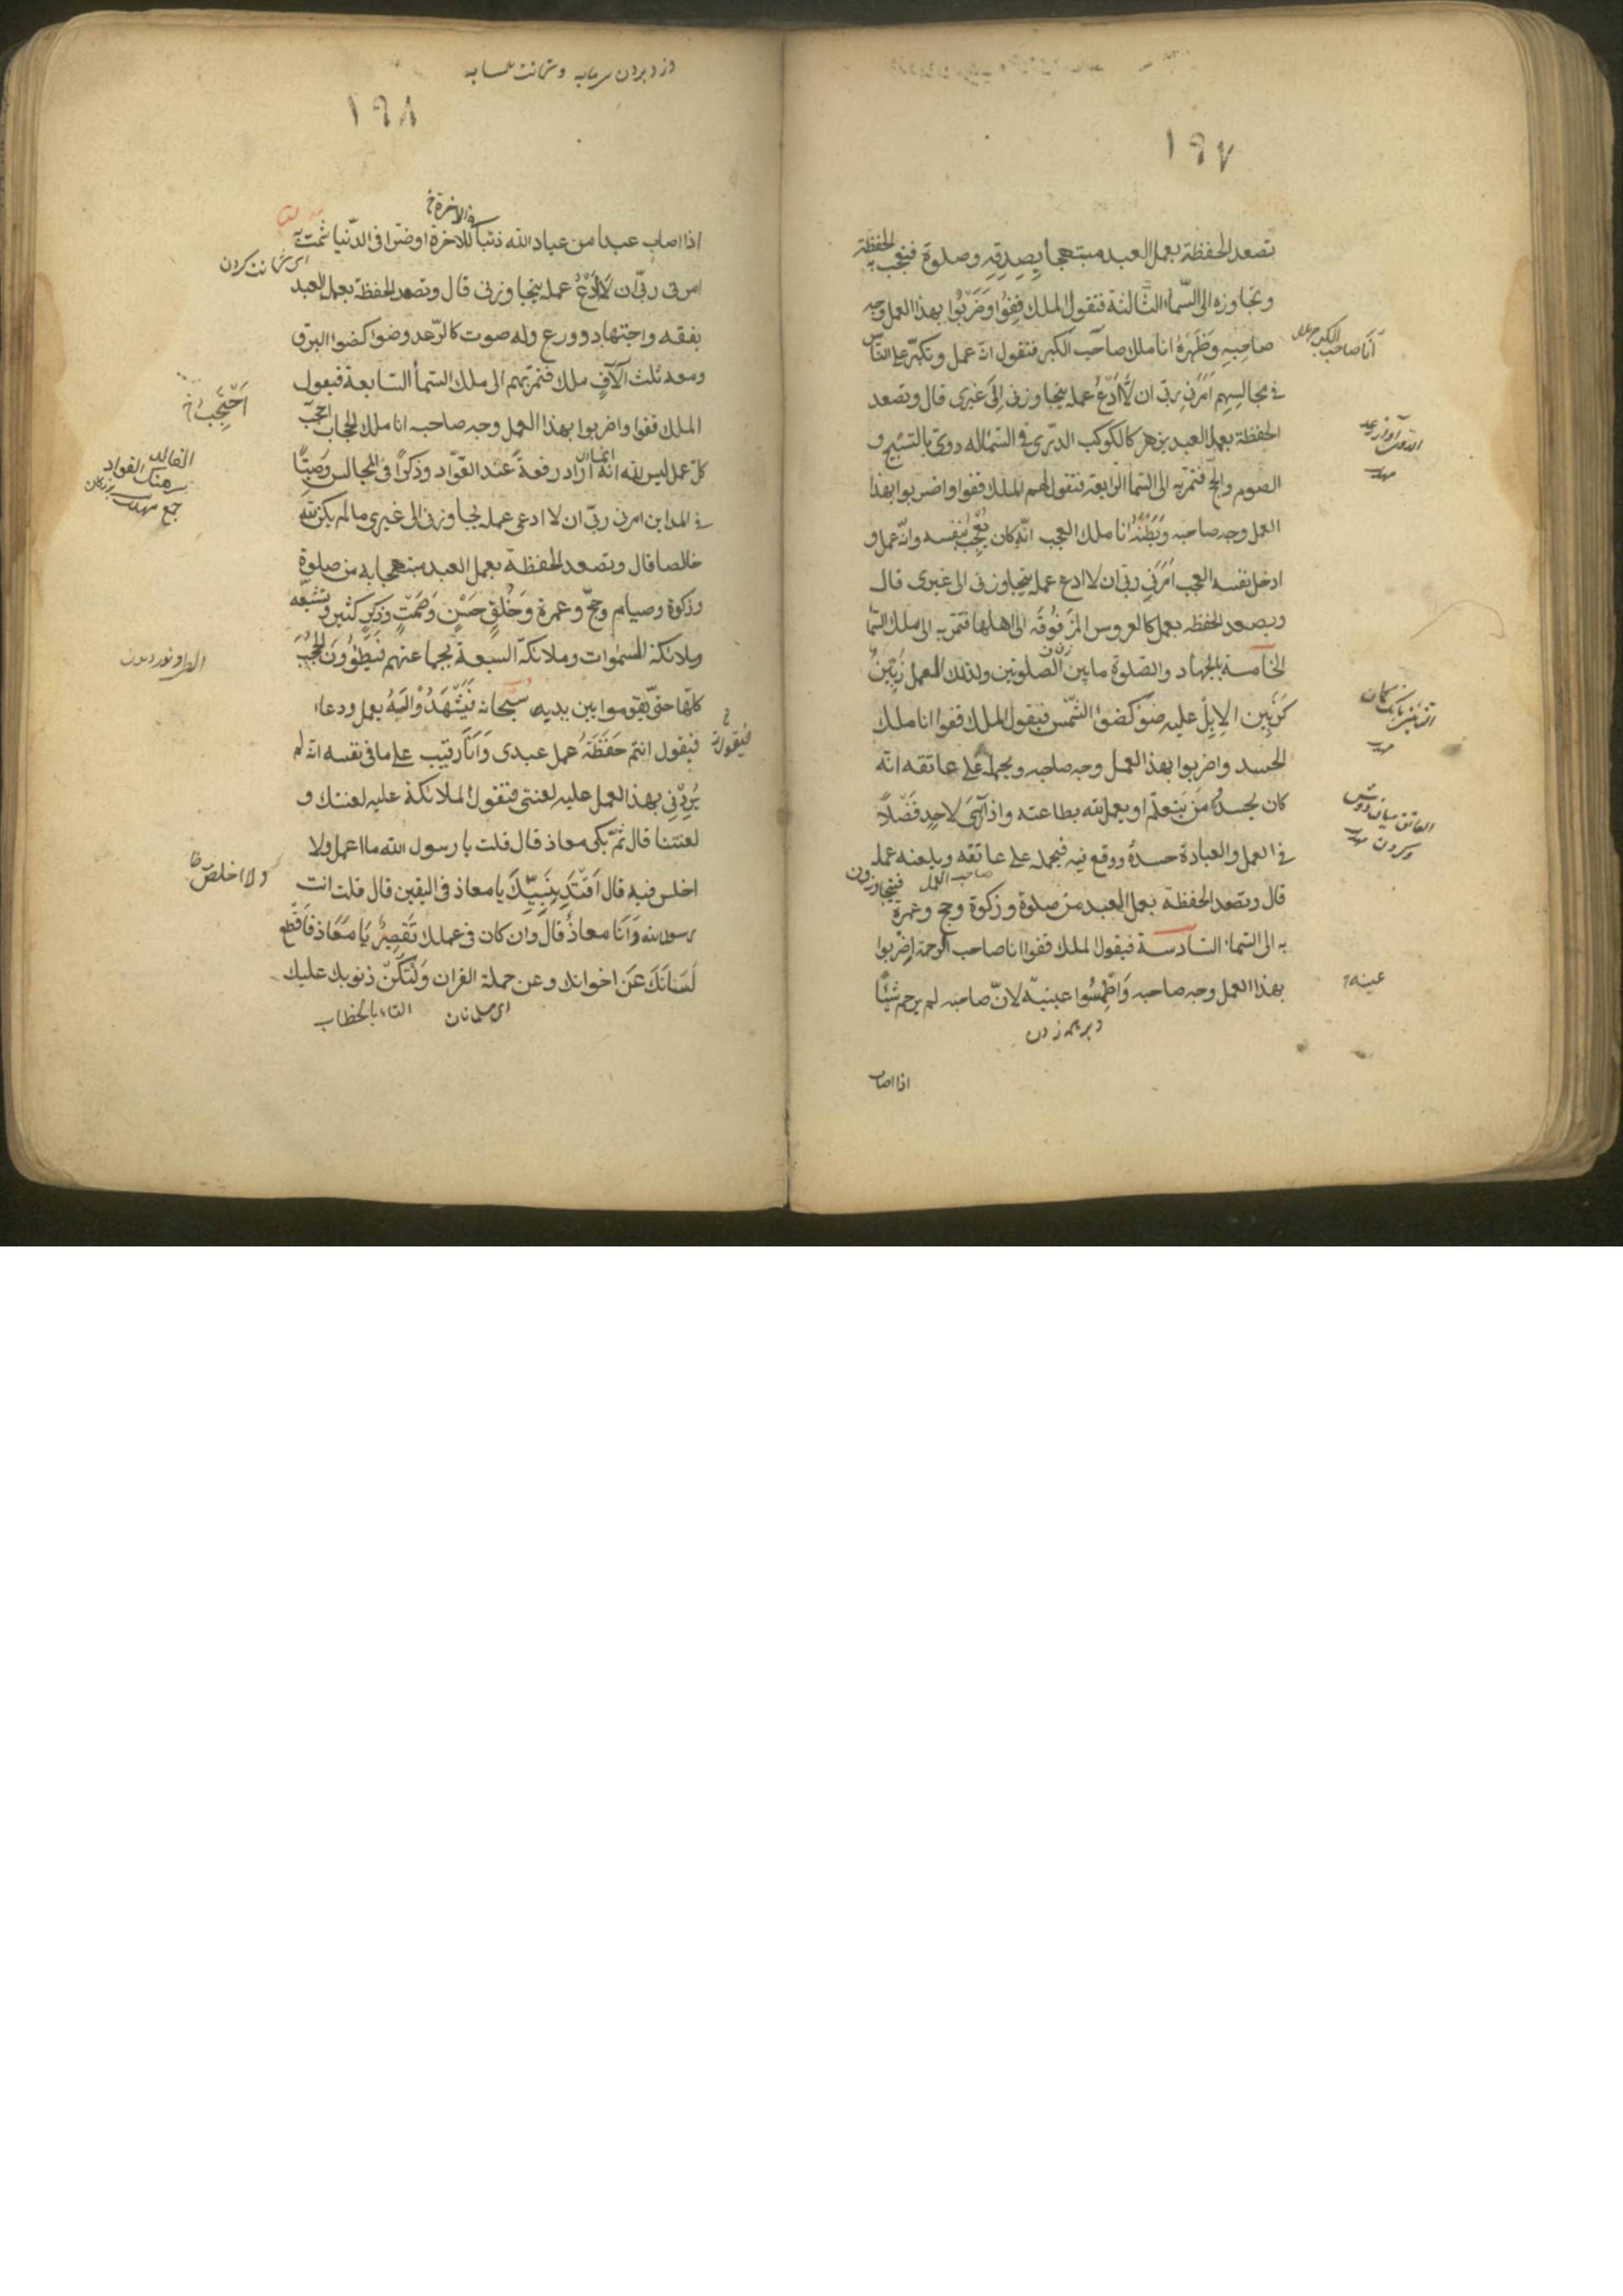 ١٩٧
تصعد الحفظة بعمل العبد مبتهجا بصدقه وصلوة فتعجب به الحفظة
وتجاوزه الى السماء الثالثة فتقول الملك قفوا وضربوا بهذا العمل وجه
صاحبه وظهره انا ملك صاحب الكبر فتقول انه عمل وتكبر على الناس
انا صاحب الكبر
فى مجالسهم امرنى ربى ان لا ادع عمله يتجاوزنى الى غيرى قال وتصعد
الحفظة بعمل العبد يزهر كالكوكب الدرى فى السماء له دوى بالتسبيح و
الصوم والحج فتمر به الى السماء الرابعة فتقول لهم الملك قفوا واضربوا بهذا
العمل وجه صاحبه وبطنه انا ملك العجب انه كان يعجب بنفسه وانه عمل و
ادخل نفسه العجب امرنى ربى ان لا ادع عمله يتجاوزنى الى غيرى قال
ويصعد الحفظه بعمل كالعروس المزفوفه الى اهلها فتمر به الى ملك السماء
الخامسة بالجهاد والصلوة ما بين الصلوتين ولذلك العمل رنين
كرنين الابل عليه ضوء كضوء الشمس فيقول الملك قفوا انا ملك
الحسد واضربوا بهذا العمل وجه صاحبه ويحمله على عاتقه انه
كان يحسد من يتعلم او يعمل لله بطاعته واذا راى لاحد فضلا
فى العمل والعبادة حسده ووقع فيه فيحمله على عاتقه ويلعنه عمله
صاحب العمل فيتجاوزون
قال وتصعد الحفظة بعمل العبد من صلوة وزكوة وحج وعمرة
به الى السماء السادسة فيقول الملك قفوا انا صاحب الرحمة اضربوا
بهذا العمل وجه صاحبه واطمسوا عينيه لان صاحبه لم يرحم شيئا
عينه
اذا اصاب
١٩٨
فى الآخرة خ
اذا اصاب عبدا من عباد الله ذنبا للاخرة او ضرا فى الدنيا شمت به
اى شماتت كردن
امرنى ربى ان لا ادع عمله يتجاوزنى قال وتصعد الحفظة بعمل العبد
بفقه واجتهاد وورع وله صوت كالرعد وضوء كضوء البرق
ومعه ثلث آلاف ملك فتمر بهم الى ملك السماء السابعة فيقول
احتجب خ
الملك قفوا واضربوا بهذا العمل وجه صاحبه انا ملك الحجاب احجب
كل عمل ليس لله انه اراد رفعة عند القواد وذكرا فى المجالس وصيتا
فى المداين امرنى ربى ان لا ادعى عمله يجاوزنى الى غيرى ما لم يكن لله
خالصا قال وتصعد الحفظة بعمل العبد مبتهجا به من صلوة
وزكوة وصيام وحج وعمرة وخلق حسن وصمت وذكر كثير وتشيعه
وملائكة السموات وملائكة السبعة بجماعتهم فيطؤون الحجب
كلها حتى يقوموا بين يديه سبحانه فيشهدوا له بعمل ودعاء
فيقول خ
فيقول انتم حفظة عمل عبدى وانا رقيب على ما فى نفسه انه لم
يردنى بهذا العمل عليه لعنتى فتقول الملائكة عليه لعنتك و
لعنتنا قال ثم بكى معاذ قال قلت يا رسول الله ما اعمل ولا
ولا اخلص
اخلص فيه قال اقتد بنبيك يا معاذ فى اليقين قال قلت انت
رسول الله وانا معاذ قال وان كان فى عملك تقصير يا معاذ فاقطع
لسانك عن اخوانك وعن حملة القران ولتكن ذنوبك عليك
التاء بالخطاب